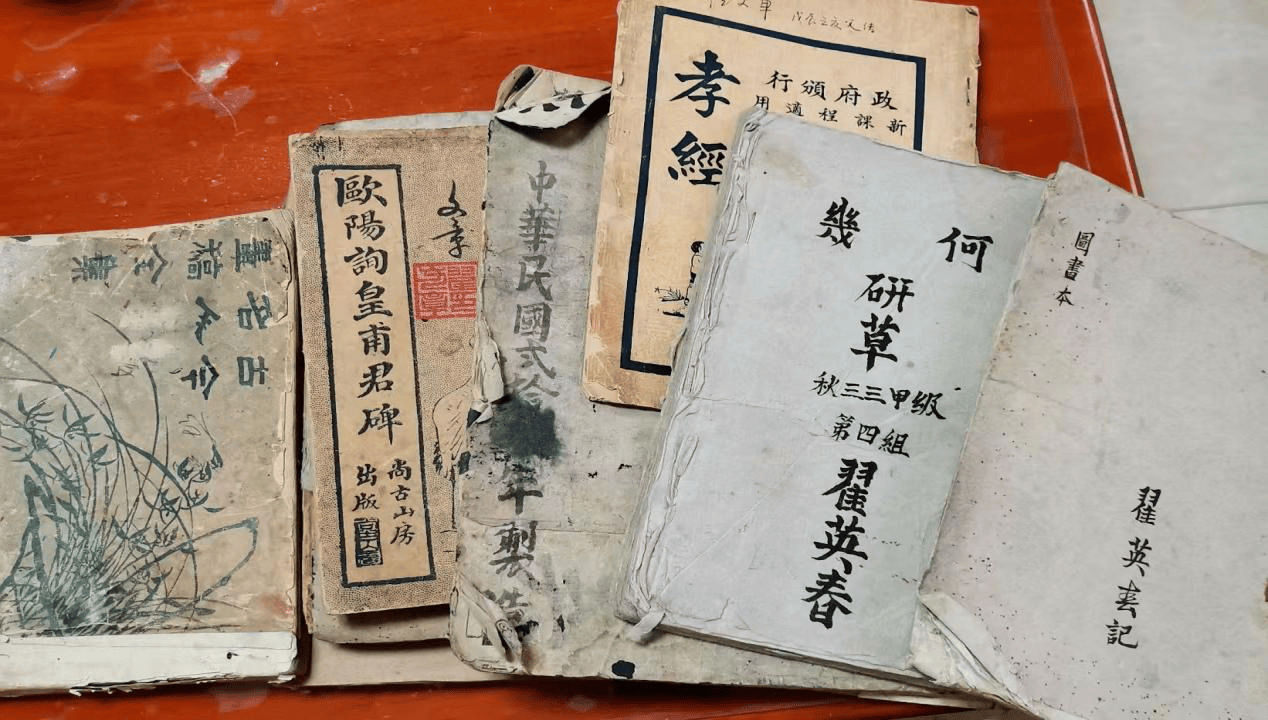 古今名
畫稿全集
歐陽詢皇甫君碑
尚古山房
出版
文章
中華民國弍拾
年製造
孝經
政府頒行
新課程適用
幾何
研草
秋三三甲級
第四組
翟英春
圖書本
翟英春記